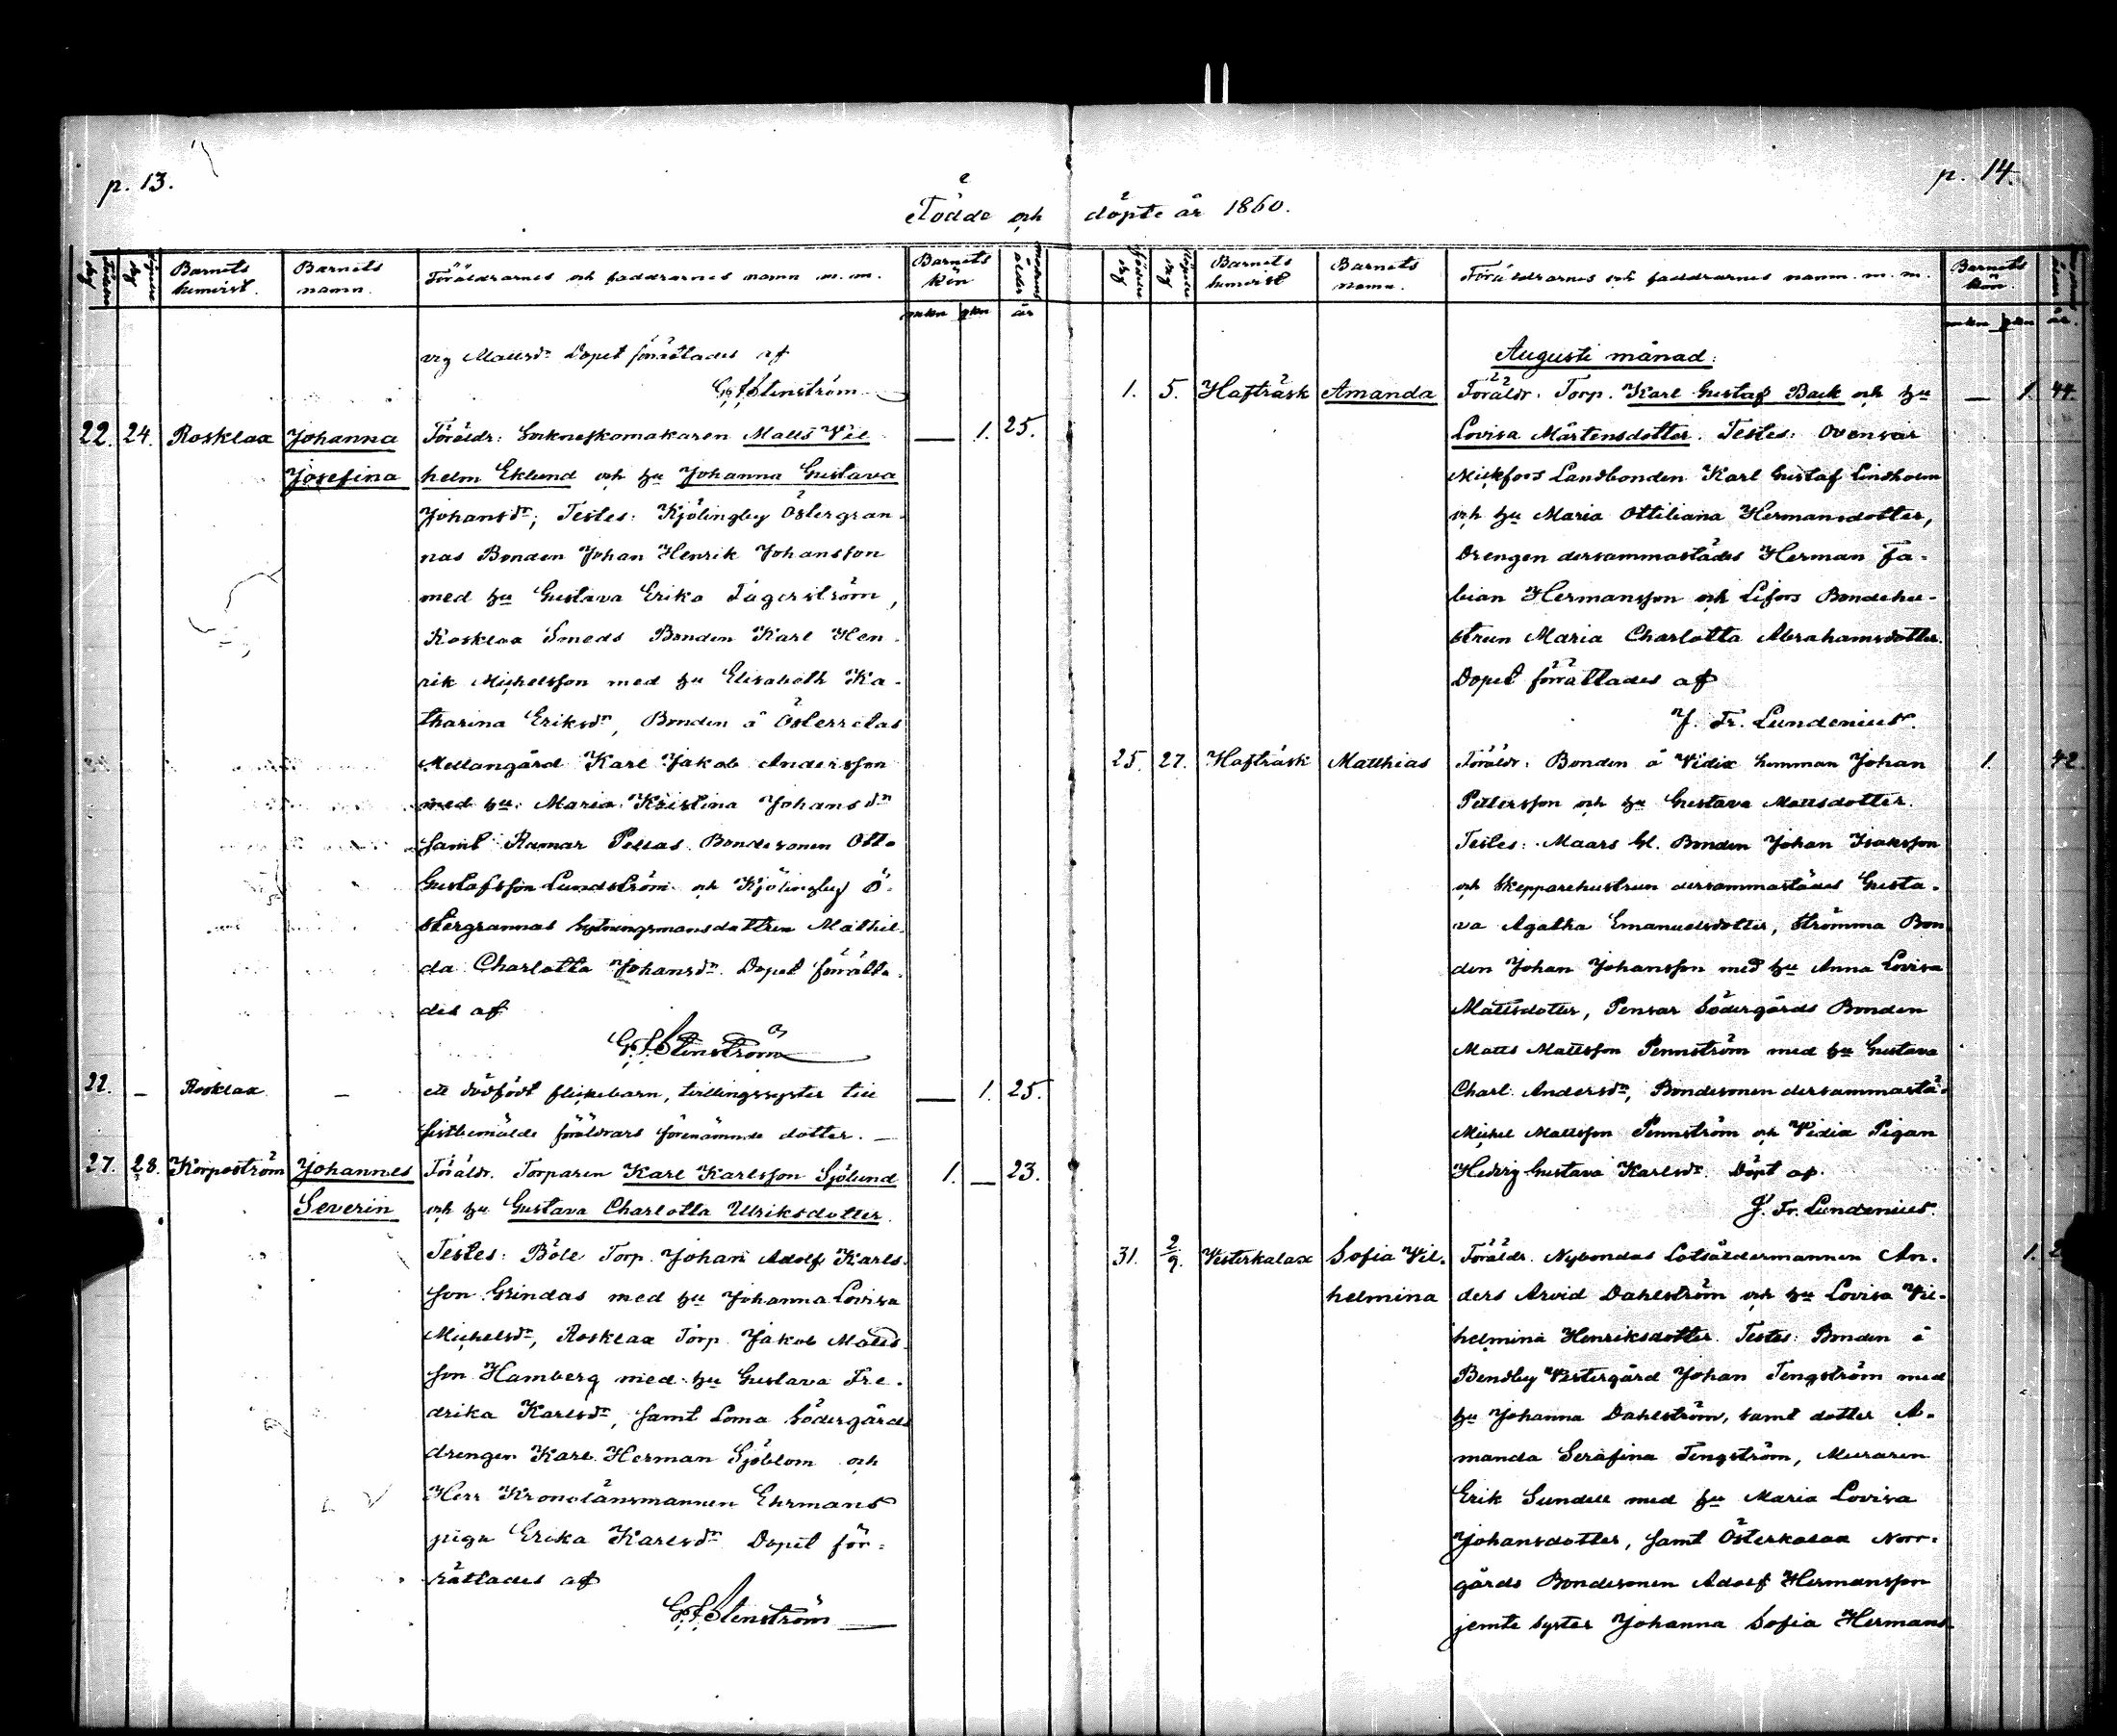 p. 13.
p. 14.
Födde och döpte år 1860.
Födelse dag
Döpelse dag
Barnets hemvist.
Barnets namn.
Föräldrarnes och faddrarnes namn m. m.
Barnets kön
mkn qkn
modrens ålder år
vig Mattsdr Dopet förrättades af
G. F. Stenström
22. 24. Rosklax Johanna Föräldr: Sockneskomakaren Matts Vil — 1. 25.
Josefina helm Eklund och hu Johanna Gustava
Johansdr; Testes: Kjölingby Östergran-
nas Bonden Johan Henrik Johansson
med hu Gustava Erika Fagerström,
Rosklax Smeds Bonden Karl Hen-
rik Michelsson med hu Elisabeth Ka-
tharina Eriksdr, Bonden å Österretas
Mellangård Karl Jakob Andersson
med hu Maria Kristina Johansdr
samt Ramar Pellas Bondesonen Otto
Gustafsson Lundström och Kjölingby Ö-
stergrannas Sytningsmansdottren Mathil-
da Charlotta Johansdr. Dopet förrätta-
des af
G. F. Stenström
22. – Rosklax – ett dödfödt flickebarn, tvillingssyster till — 1. 25.
sistbemälde föräldrars förenämnde dotter. —
27. 28. Korpoström Johannes Föräldr. Torparen Karl Karlsson Sjölund 1. — 23.
Severin och hu Gustava Charlotta Ulriksdotter.
Testes: Böle Torp. Johan Adolf Karls-
son Grindas med hu Johanna Lovisa
Michelsdr, Rosklax Torp. Jakob Matts-
son Hamberg med hu Gustava Fre-
drika Karlsdr, samt Loma Södergårds
drengen Karl Herman Sjöblom och
Herr Kronolänsmannen Ehrmans
piga Erika Karlsdr Dopet för-
rättades af
G. F. Stenström
Födelse dag
Döpelse dag
Barnets hemvist
Barnets namn.
Föräldrarnes och faddrarnes namn. m. m.
Barnets kön.
mkn qkn
år.
Augusti månad:
1. 5. Hafträsk Amanda Föräldr. Torp. Karl Gustaf Back och hu — 1. 44.
Lovisa Mårtensdotter. Testes: Ovensor
Mickfors Landbonden Karl Gustaf Lindholm
och hu Maria Ottiliana Hermansdotter,
Drengen dersammastädes Herman Fa-
bian Hermansson och Lifors Bondehu-
strun Maria Charlotta Abrahamsdotter.
Dopet förrättades af
J. Fr. Lundenius.
25. 27. Hafträsk Matthias Föräldr: Bonden å Vidix hemman Johan 1. 42.
Pettersson och hu Gustava Mattsdotter.
Testes: Maars Gl. Bonden Johan Isaksson
och Skepparehustrun dersammastädes Gusta-
va Agatha Emanuelsdotter, Strömma Bon
den Johan Johansson med hu Anna Lovisa
Mattsdotter, Pensar Södergårds Bonden
Matts Mattsson Pennström med hu Gustava
Charl. Andersdr, Bondesonen dersammastä-s
Michel Mattsson Pennström och Vidix Pigan
Hedvig Gustava Karlsdr. Döpt af
J. Fr. Lundenius.
31. 2/9. Vesterkalax Sofia Vil- Föräldr. Nybondas Lotsåldermannen An- 1. 2
helmina ders Arvid Dahlström och hu Lovisa Vil-
helmina Henriksdotter. Testes: Bonden å
Bendby Vestergård Johan Tengström med
hu Johanna Dahlström, samt dotter A-
manda Serafina Tengström, Muraren
Erik Sundell med hu Maria Lovisa
Johansdotter, samt Österkalax Norr-
gårds Bondesonen Adolf Hermansson
jemte syster Johanna Sofia Hermans